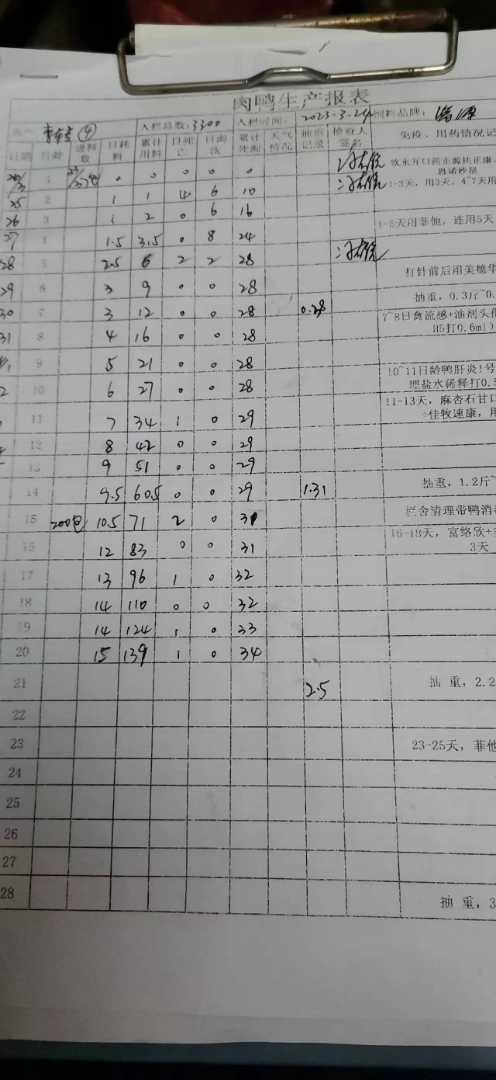 肉鸭生产报表
④ 入栏总数:3300 入栏时间: 2023-3-24 饲料品牌:
日期 日龄 进料数 日耗料 累计用料 日死亡 日淘汰 累计死淘 天气情况 抽重记录 检验人签名 免疫、用药情况记
1 0 0 0 0 0
25 2 1 1 4 6 10 1-3天，用
26 3 1 2 0 6 16 1-5天用菲他，连用5天
27 1.5 3.5 0 8 24
28 5 2.5 6 2 2 28 打针前后用美桅华
29 6 3 9 0 0 28 抽重，0.3斤~0.
30 7 3 12 0 0 28 0.28 7~8日禽流感+油剂头孢 H5打0.6ml)
31 8 4 16 0 0 28
9 5 21 0 0 28 10~11日龄鸭肝炎1号
2 10 6 27 0 0 28 理盐水稀释打0.
11 7 34 1 0 29 11-13天，麻杏石甘口 佳牧速康，用
12 8 42 0 0 29
13 9 51 0 0 29
14 9.5 60.5 0 0 29 1.31 抽重，1.2斤~
15 200包 10.5 71 2 0 31 栏舍清理带鸭消
16 12 83 0 0 31 16-18天，富络欣+ 3天
17 13 96 1 0 32
18 14 110 0 0 32
19 14 124 1 0 33
20 15 139 1 0 34
21 2.5 抽重，2.2
22
23 23-25天，菲他
24
25
26
27
28 抽重，3